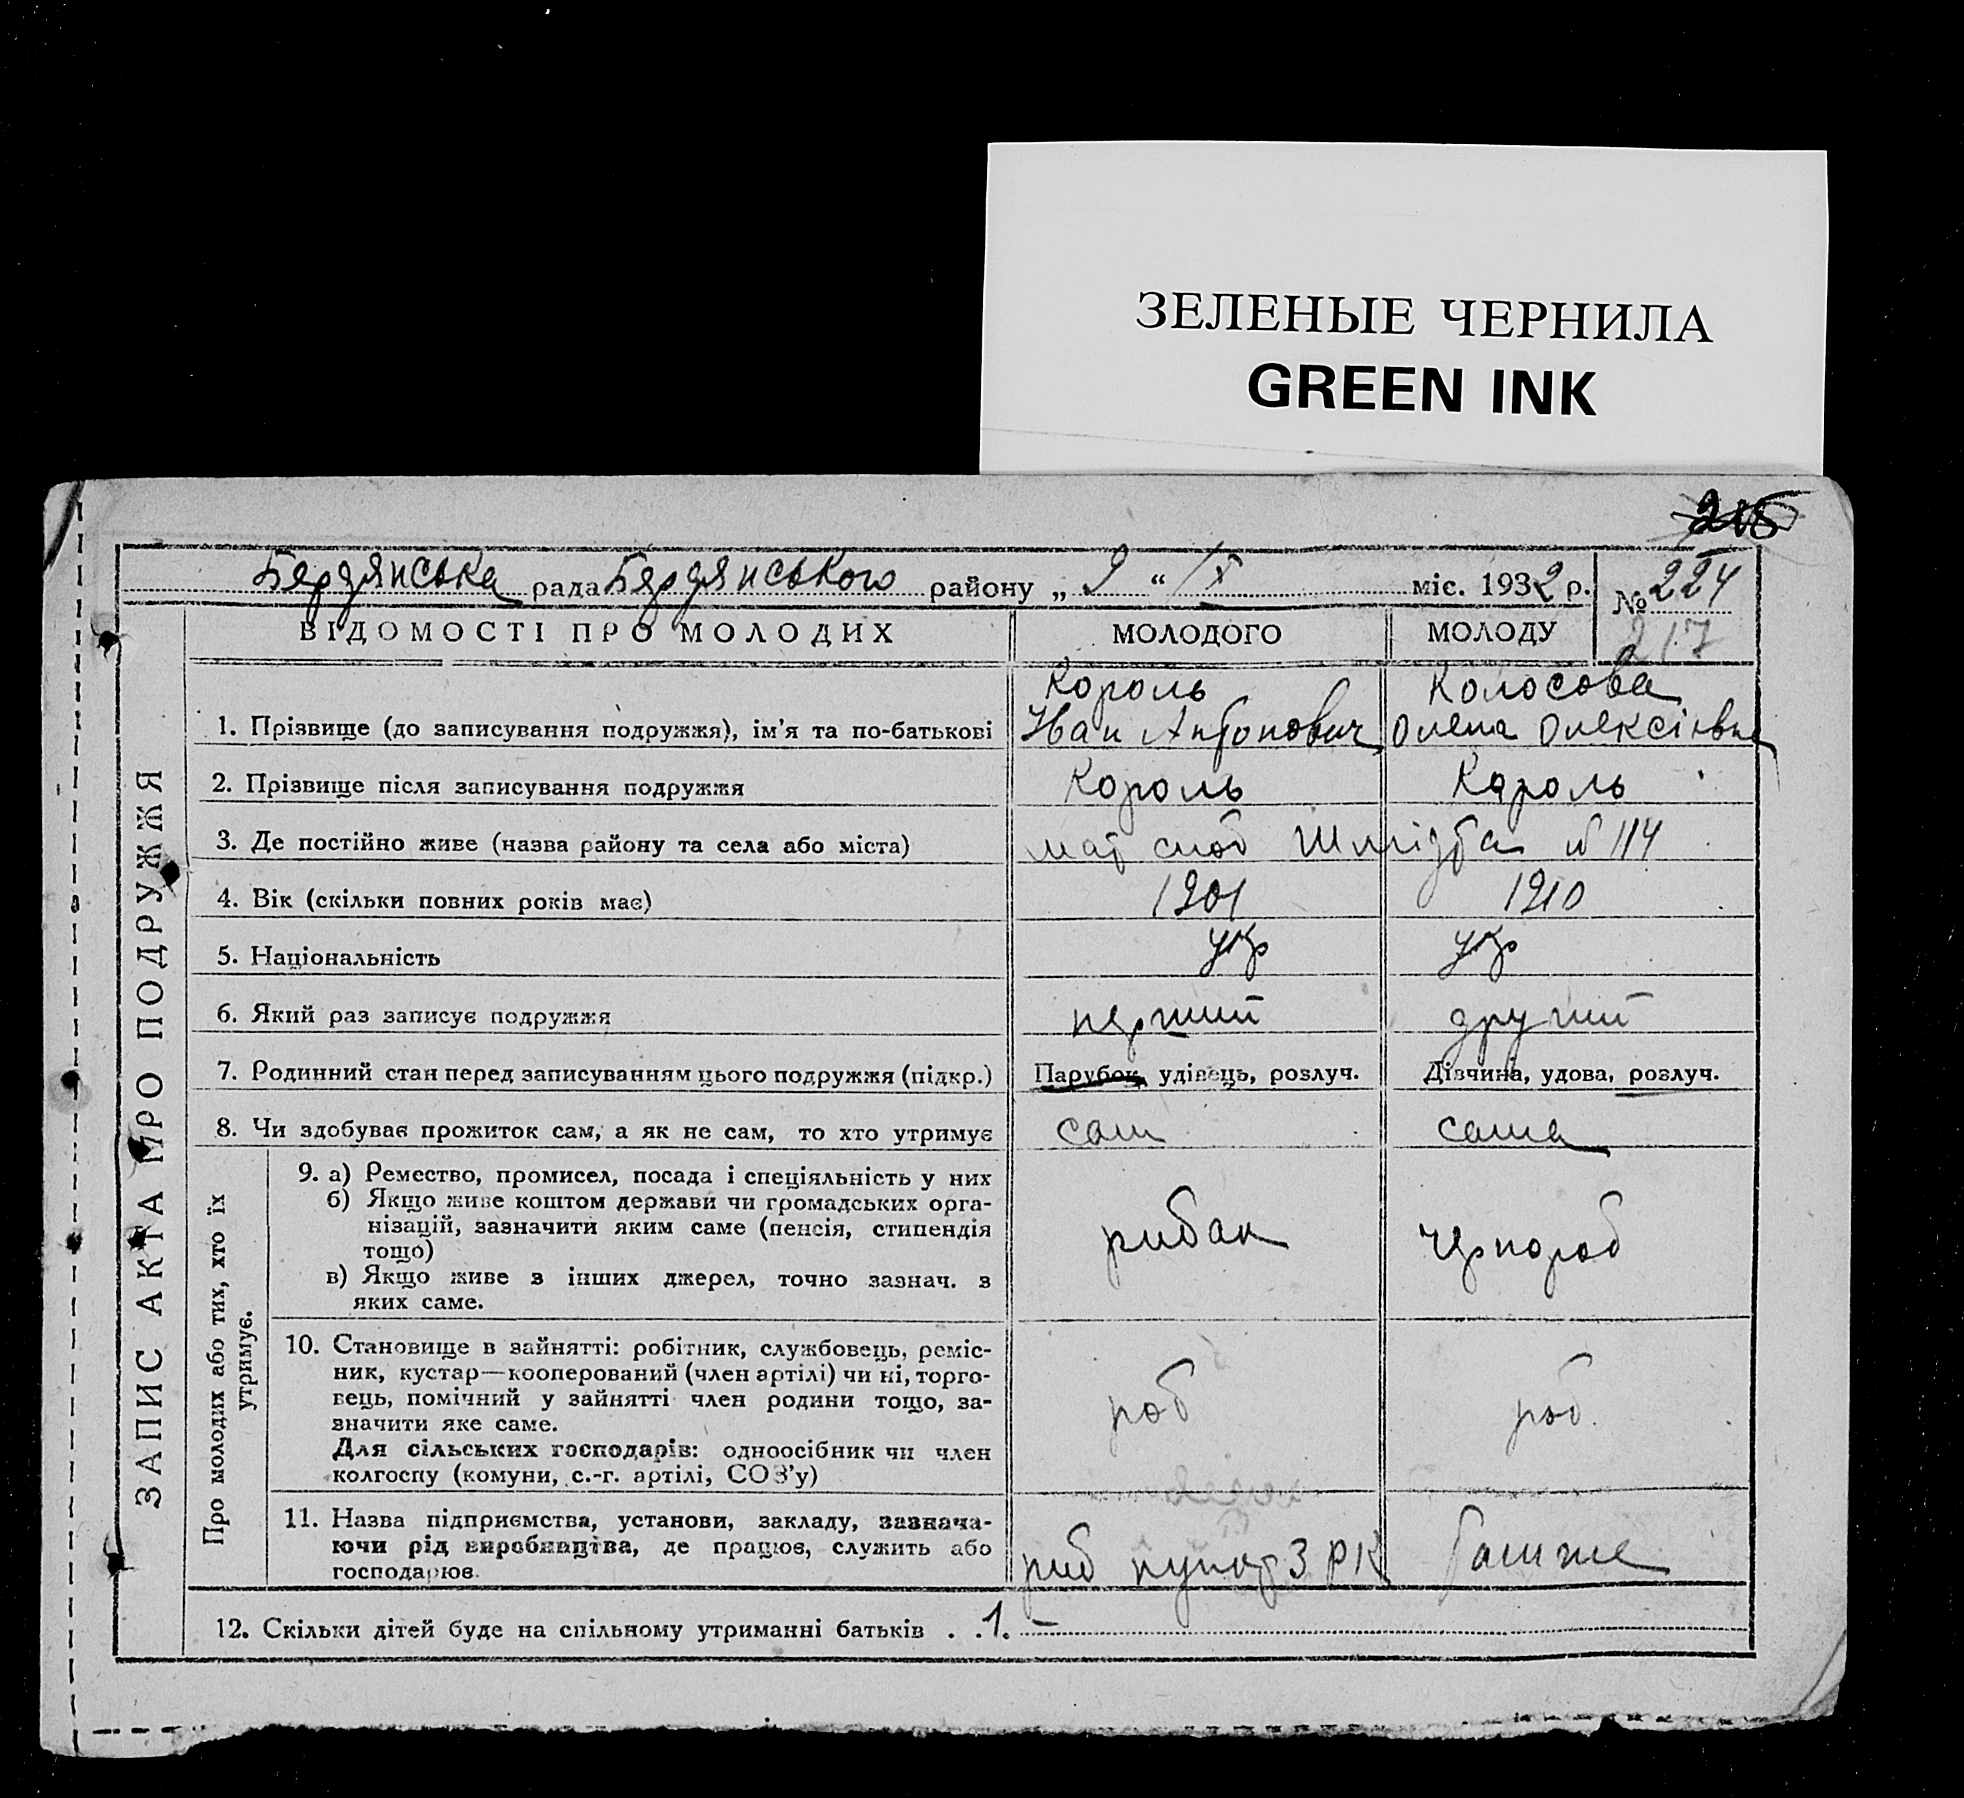 ЗЕЛЕНЫЕ ЧЕРНИЛА
GREEN INK
215
Бердянська рада Бердянського району „ 9 “ IX міс. 1932 р. № 224
217
ЗАПИС АКТА ПРО ПОДРУЖЖЯ
ВІДОМОСТІ ПРО МОЛОДИХ МОЛОДОГО МОЛОДУ
Король Колосова
1. Прізвище (до записування подружжя), ім'я та по-батькові Іван Антонович Олена Олексіївна
2. Прізвище після записування подружжя Король Король
3. Де постійно живе (назва району та села або міста) мат слоб Шмідта № 114
4. Вік (скільки повних років має) 1901 1910
5. Національність укр укр
6. Який раз записує подружжя перший другий
7. Родинний стан перед записуванням цього подружжя (підкр.) Парубок, удівець, розлуч. Дівчина, удова, розлуч.
8. Чи здобуває прожиток сам, а як не сам, то хто утримує сам сама
Про молодих або тих, хто їх
утримує.
9. а) Ремество, промисел, посада і спеціяльність у них
б) Якщо живе коштом держави чи громадських орга-
нізацій, зазначити яким саме (пенсія, стипендія
тощо)
в) Якщо живе з інших джерел, точно зазнач. з
яких саме.
рибак чорнороб
10. Становище в зайнятті: робітник, службовець, реміс-
ник, кустар—кооперований (член артілі) чи ні, торго-
вець, помічний у зайнятті член родини тощо, за-
значити яке саме.
Для сільських господарів: одноосібник чи член
колгоспу (комуни, с.-г. артілі, СОЗ'у)
роб роб.
11. Назва підприємства, установи, закладу, зазнача-
ючи рід виробництва, де працює, служить або
господарює.
риб пункт З РК там же
12. Скільки дітей буде на спільному утриманні батьків . . 1. —